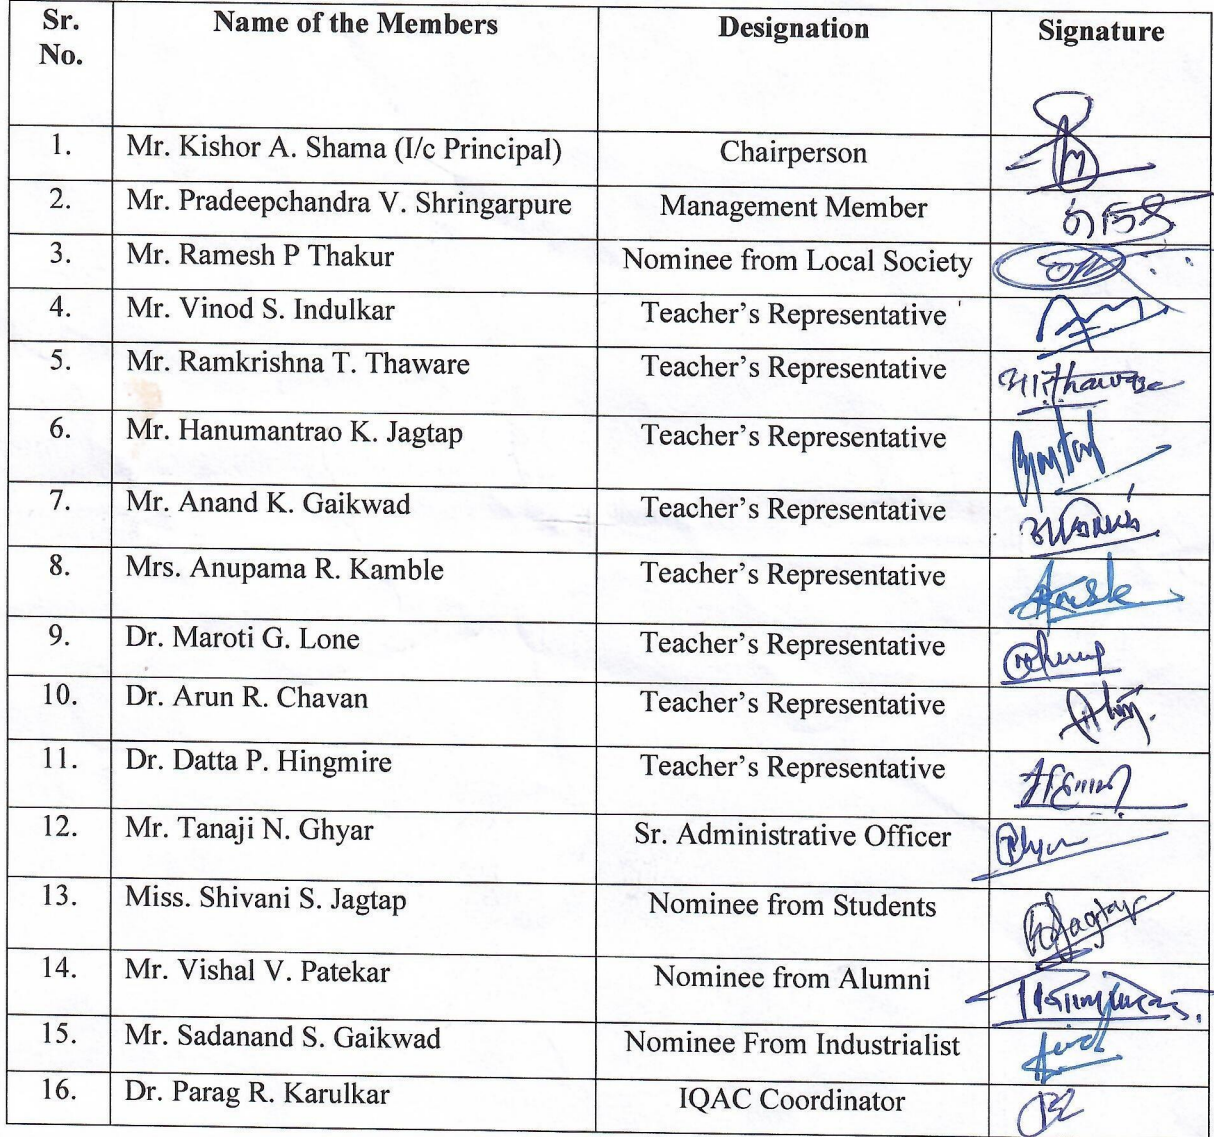 Sr. No. Name of the Members Designation Signature
1. Mr. Kishor A. Shama (I/c Principal) Chairperson
2. Mr. Pradeepchandra V. Shringarpure Management Member
3. Mr. Ramesh P Thakur Nominee from Local Society
4. Mr. Vinod S. Indulkar Teacher’s Representative
5. Mr. Ramkrishna T. Thaware Teacher’s Representative
6. Mr. Hanumantrao K. Jagtap Teacher’s Representative
7. Mr. Anand K. Gaikwad Teacher’s Representative
8. Mrs. Anupama R. Kamble Teacher’s Representative
9. Dr. Maroti G. Lone Teacher’s Representative
10. Dr. Arun R. Chavan Teacher’s Representative
11. Dr. Datta P. Hingmire Teacher’s Representative
12. Mr. Tanaji N. Ghyar Sr. Administrative Officer
13. Miss. Shivani S. Jagtap Nominee from Students
14. Mr. Vishal V. Patekar Nominee from Alumni
15. Mr. Sadanand S. Gaikwad Nominee From Industrialist
16. Dr. Parag R. Karulkar IQAC Coordinator